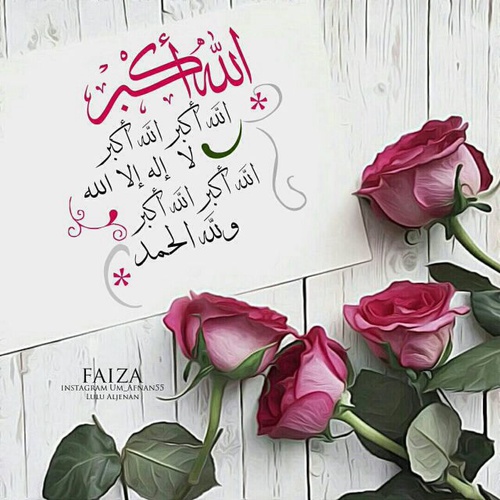 الله أكبر
الله أكبر الله أكبر
لا إله إلا الله
الله أكبر الله أكبر
ولله الحمد
FAIZA
INSTAGRAM UM_AFNAN55
LULU ALJENAN